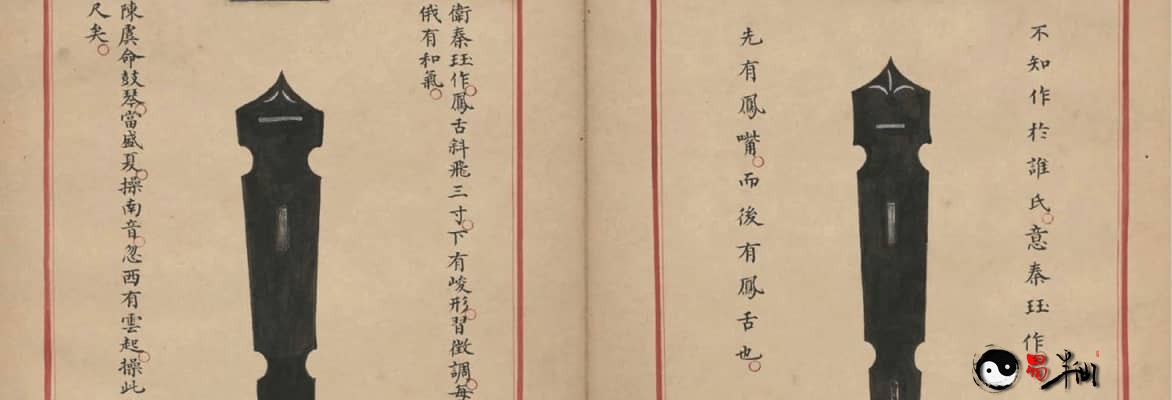 不知作於誰氏意秦珏作
先有鳳嘴而後有鳳舌也
衛秦珏作鳳舌斜飛三寸下有峻形習徵調每
俄有和氣
陳虞命鼓琴當盛夏操南音忽西有雲起操此
尺矣
易半仙